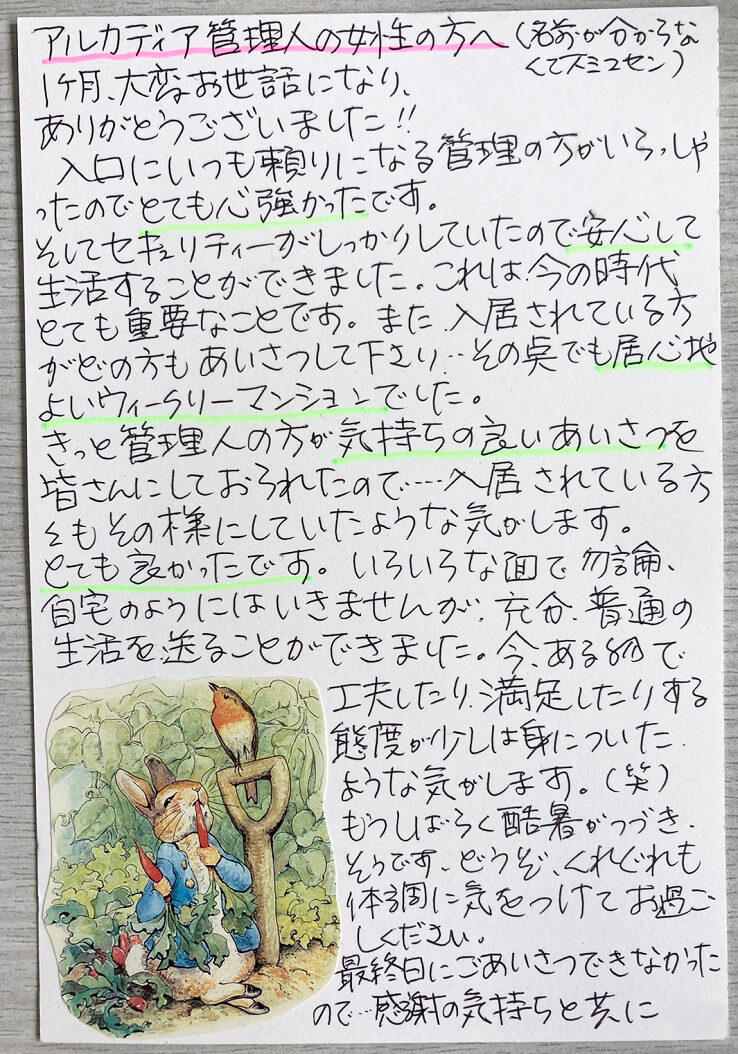 アルカディア管理人の女性の方へ(名前が分からな
くてスミマセン)
1ヶ月、大変お世話になり、
ありがとうございました!!
入口にいつも頼りになる管理の方がいらっしゃ
ったのでとても心強かったです。
そしてセキュリティーがしっかりしていたので安心して
生活することができました。これは今の時代
とても重要なことです。また、入居されている方
がどの方もあいさつして下さり‥その点でも居心地
よいウィークリーマンションでした。
きっと管理人の方が気持ちの良いあいさつを
皆さんにしておられたので‥‥入居されている方
々もその様にしていたような気がします。
とても良かったです。いろいろな面で勿論、
自宅のようにはいきませんが、充分、普通の
生活を送ることができました。今、ある物で
工夫したり、満足したりする
態度が少しは身についた
ような気がします。(笑)
もうしばらく酷暑がつづき
そうです、どうぞ、くれぐれも
体調に気をつけてお過ご
しください。
最終日にごあいさつできなかった
ので‥感謝の気持ちと共に